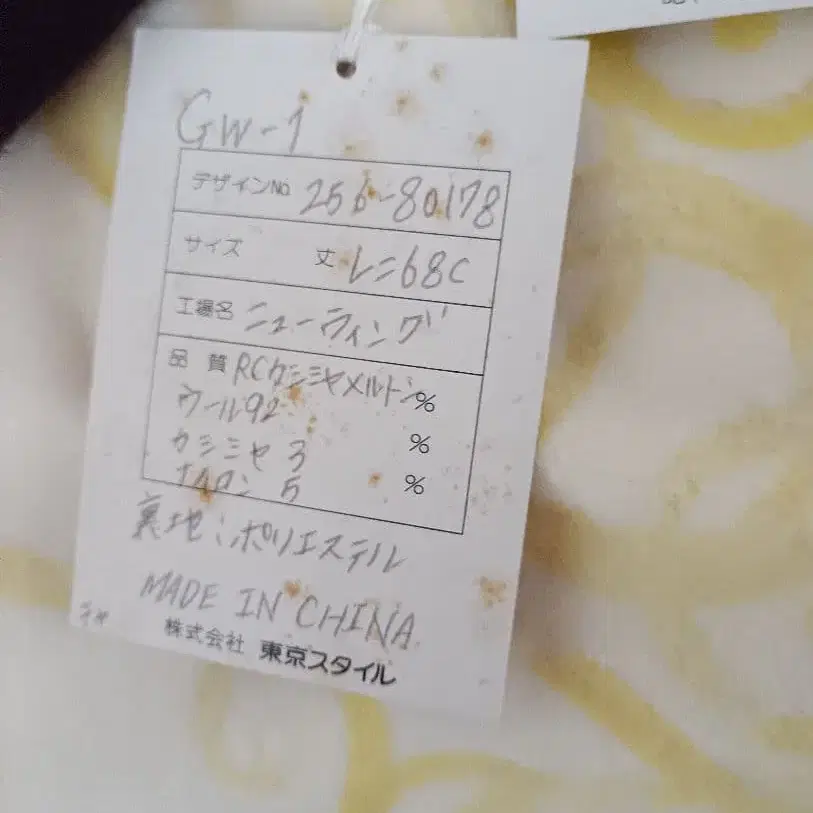 GW-1
デザインNo. 256-80178
サイズ 丈 L=68C
工場名 ニューウィング
品質 RCカシミヤメルトン %
ウール92 %
カシミヤ 3 %
ナイロン 5 %
裏地:ポリエステル
MADE IN CHINA.
株式会社 東京スタイル